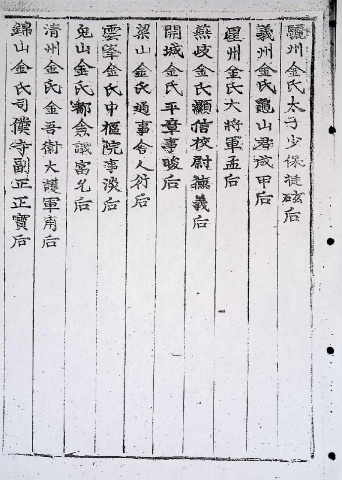 驪州金氏太子少保徒硡后
義州金氏龜山君成甲后
星州金氏大將軍孟后
燕歧金氏顯信校尉燕義后
開城金氏平章事暐后
梁山金氏通事舍人衍后
雲峯金氏中樞院事淡后
兎山金氏都僉議富允后
清州金氏金吾衛大護軍南后
錦山金氏司僕寺副正正寶后